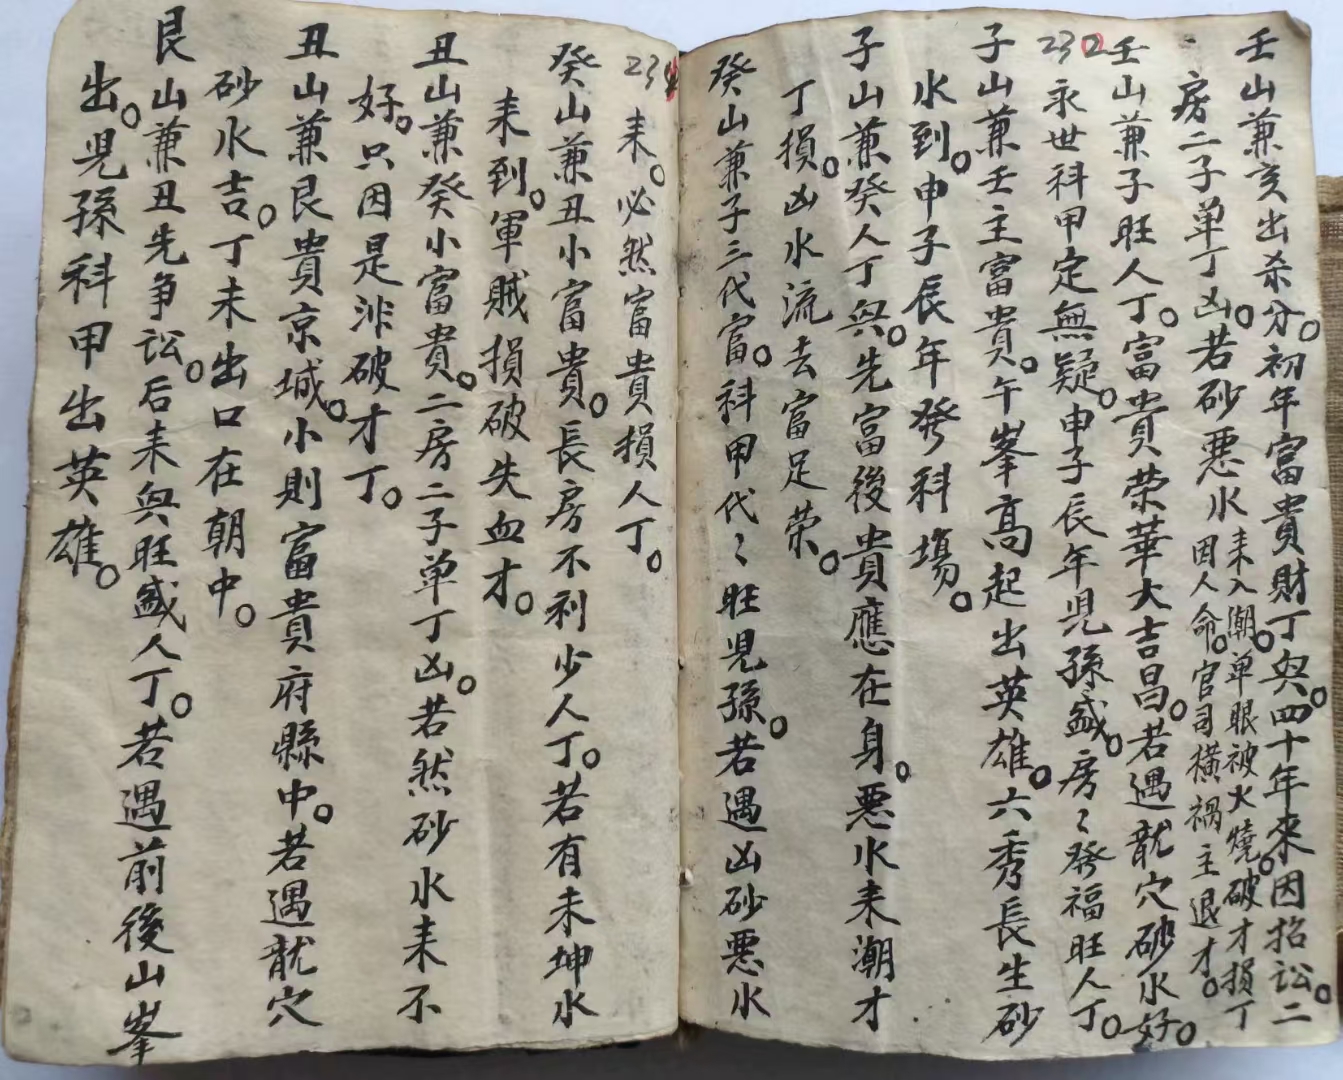 壬山兼亥出杀分。初年富貴財丁興。四十年來因招訟。二
房二子单丁凶。若砂恶水
耒入潮。单眼被火燒。破才損丁
因人命。官司横禍主退才。
壬山兼子旺人丁。富貴荣華大吉昌。若遇龍穴砂水好。
232
永世科甲定無疑。申子辰年児孫盛。房〻發福旺人丁。
子山兼壬主富貴。午峯高起出英雄。六秀長生砂
水到。申子辰年發科場。
子山兼癸人丁興。先富後貴應在身。恶水耒潮才
丁損。凶水流去富足荣。
癸山兼子三代富。科甲代〻旺児孫。若遇凶砂恶水
耒。必然富貴損人丁。
癸山兼丑小富貴。長房不利少人丁。若有未坤水
耒到。軍賊損破失血才。
丑山兼癸小富貴。二房二子单丁凶。若然砂水耒不
好。只因是非破才丁。
丑山兼艮貴京城。小則富貴府縣中。若遇龍穴
砂水吉。丁未出口在朝中。
艮山兼丑先争訟。后耒興旺盛人丁。若遇前後山峯
出。児孫科甲出英雄。